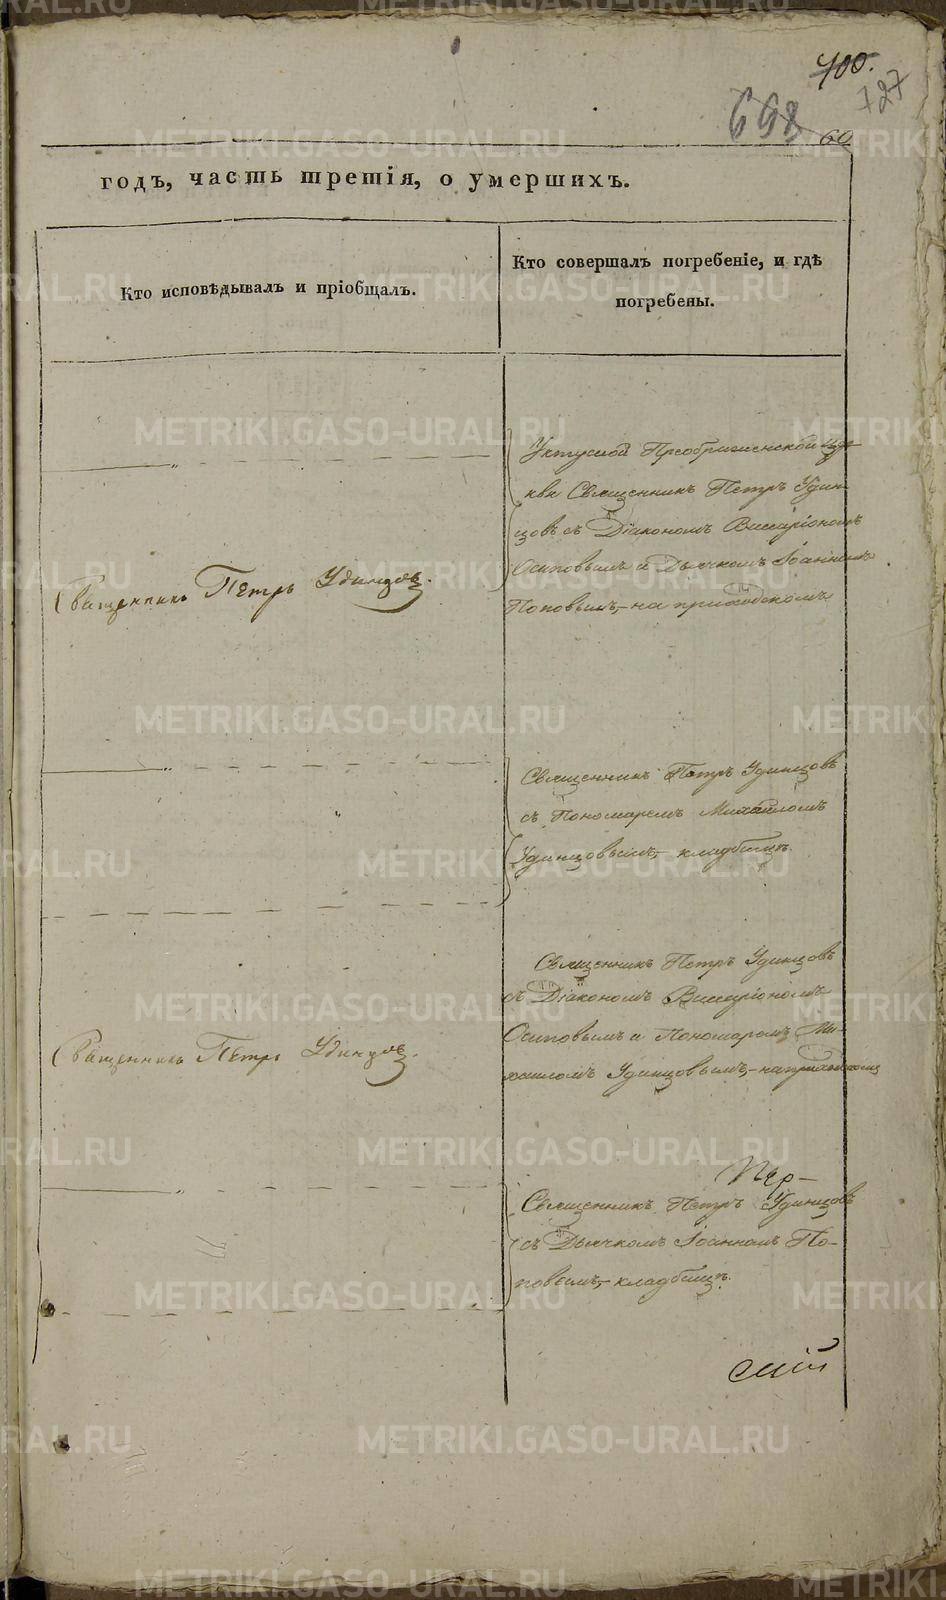 400.
727
698
60
годъ, часть третія, о умершихъ.
Кто исповѣдывалъ и пріобщалъ.
Кто совершалъ погребеніе, и гдѣ
погребены.
Уктуской Преображенской цер-
кви Священникъ Петръ Удин-
цовъ съ Діакономъ Виссаріономъ
Осиповымъ и Дьячкомъ Іоанномъ
Поповымъ,- на приходскомъ
Священникъ Петръ Удинцовъ.
Священникъ Петръ Удинцовъ
съ Пономаремъ Михаиломъ
Удинцовымъ,- кладбищѣ.
Священникъ Петръ Удинцовъ
съ Діакономъ Виссаріономъ
Осиповымъ и Пономаремъ Ми-
хаиломъ Удинцовымъ,- на приходскомъ
Священникъ Петръ Удинцовъ.
Священникъ Петръ Удинцовъ
съ Дьячкомъ Іоанномъ По-
повымъ,- кладбищѣ.
METRIKI.GASO-URAL.RU